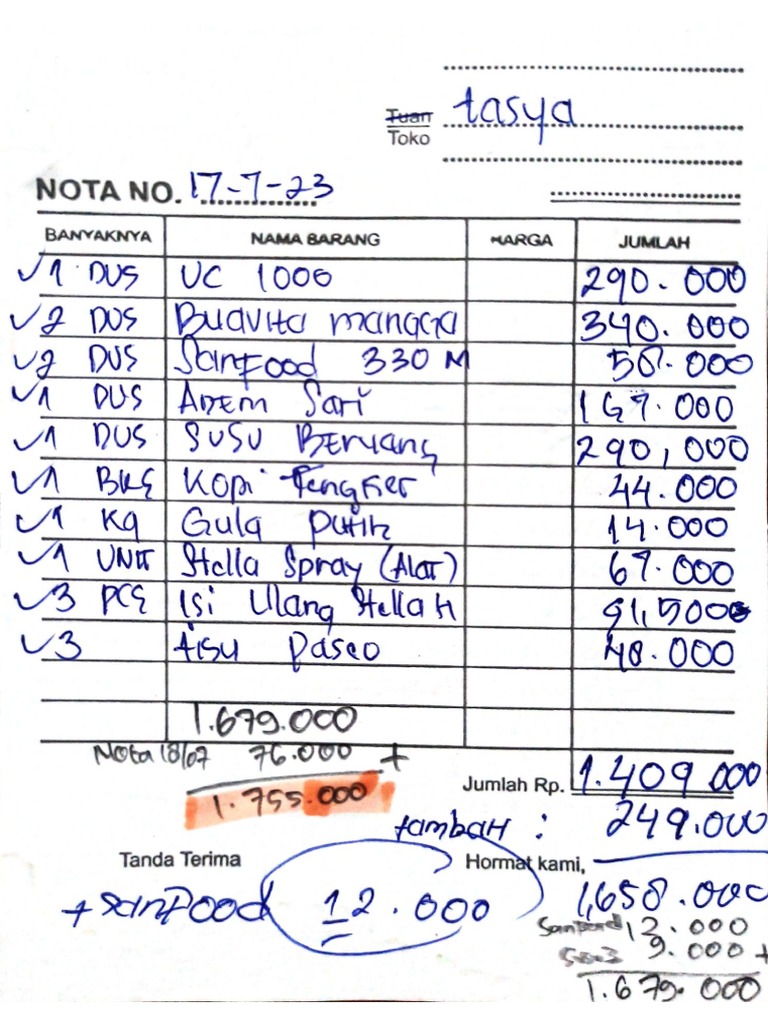 Tuan tasya
Toko
NOTA NO. 17-7-23
BANYAKNYA NAMA BARANG HARGA JUMLAH
✓1 DUS UC 1000 290.000
✓2 DUS Buavita mangga 340.000
✓2 DUS Sanfood 330 M 58.000
✓1 DUS Adem Sari 167.000
✓1 DUS SUSU Beruang 290,000
✓1 BKS Kopi Tengker 44.000
✓1 Kg Gula Putih 14.000
✓1 UNIT Stella Spray (Alat) 67.000
✓3 PCS Isi Ulang Stellah 91,5000
✓3 Tisu Paseo 48.000
1.679.000
Nota 18/07 76.000 +
Jumlah Rp. 1.409.000
1.755.000
tambah : 249.000
Tanda Terima Hormat kami,
+ sanFood 12.000 1,658.000
Sanfood 12.000
9.000 +
1.679.000